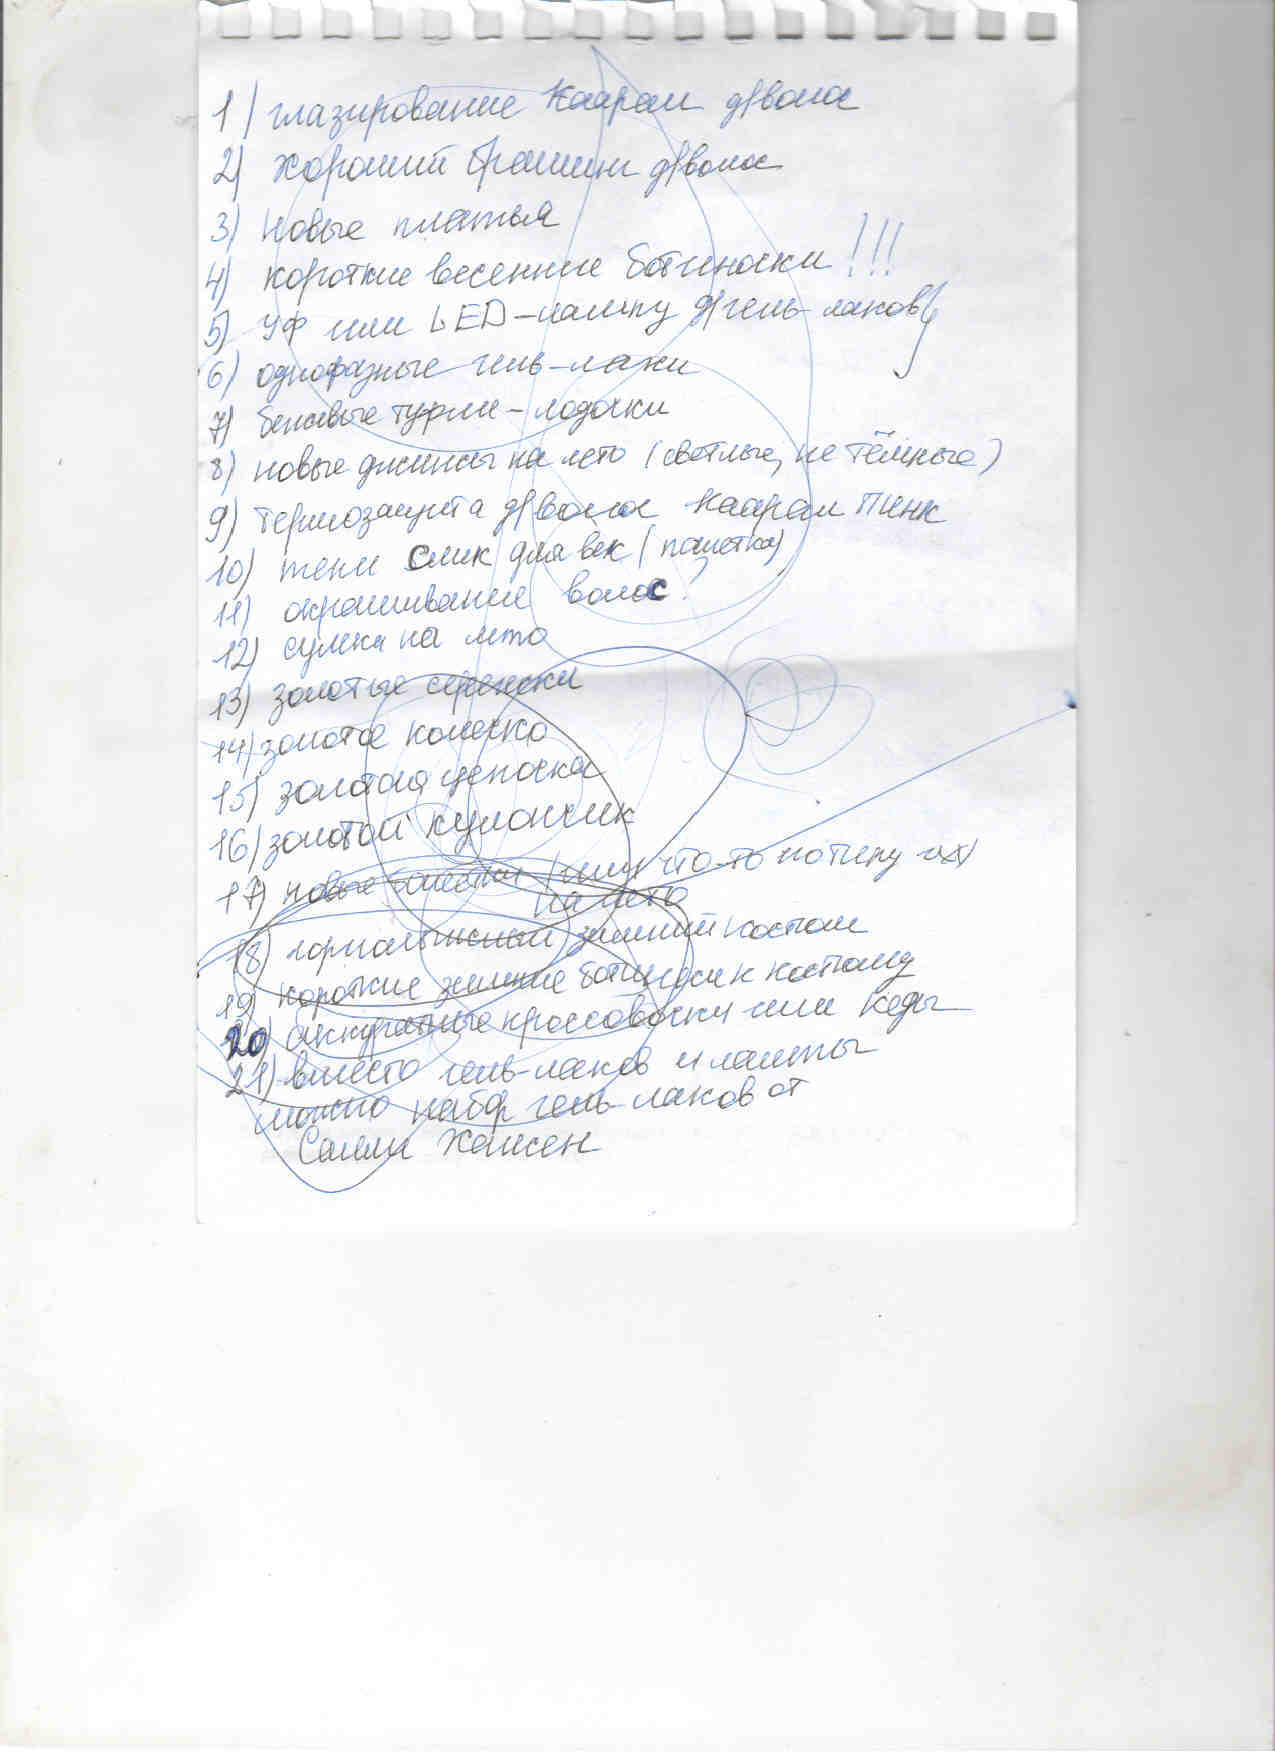 1) глазирование Каарал д/волос
2) хороший брашинг д/волос
3) новые платья
4) короткие весенние ботиночки!!!
5) УФ или LED-лампу д/гель-лаков
6) однофазные гель-лаки
7) бежевые туфли-лодочки
8) новые джинсы на лето (светлые, не тёмные)
9) термозащита д/волос Каарал Пинк
10) тени Слик для век (палетка)
11) окрашивание волос?
12) сумка на лето
13) золотые сережки
14) золотое колечко
15) золотая цепочка
16) золотой кулончик
17) новые (или что-то по типу их)
на лето
18) горнолыжный зимний костюм
19) короткие зимние ботиночки к костюму
20) аккуратные кроссовочки или кеды
21) вместо гель-лаков и лампы
можно набор гель-лаков от
Салли Хансен